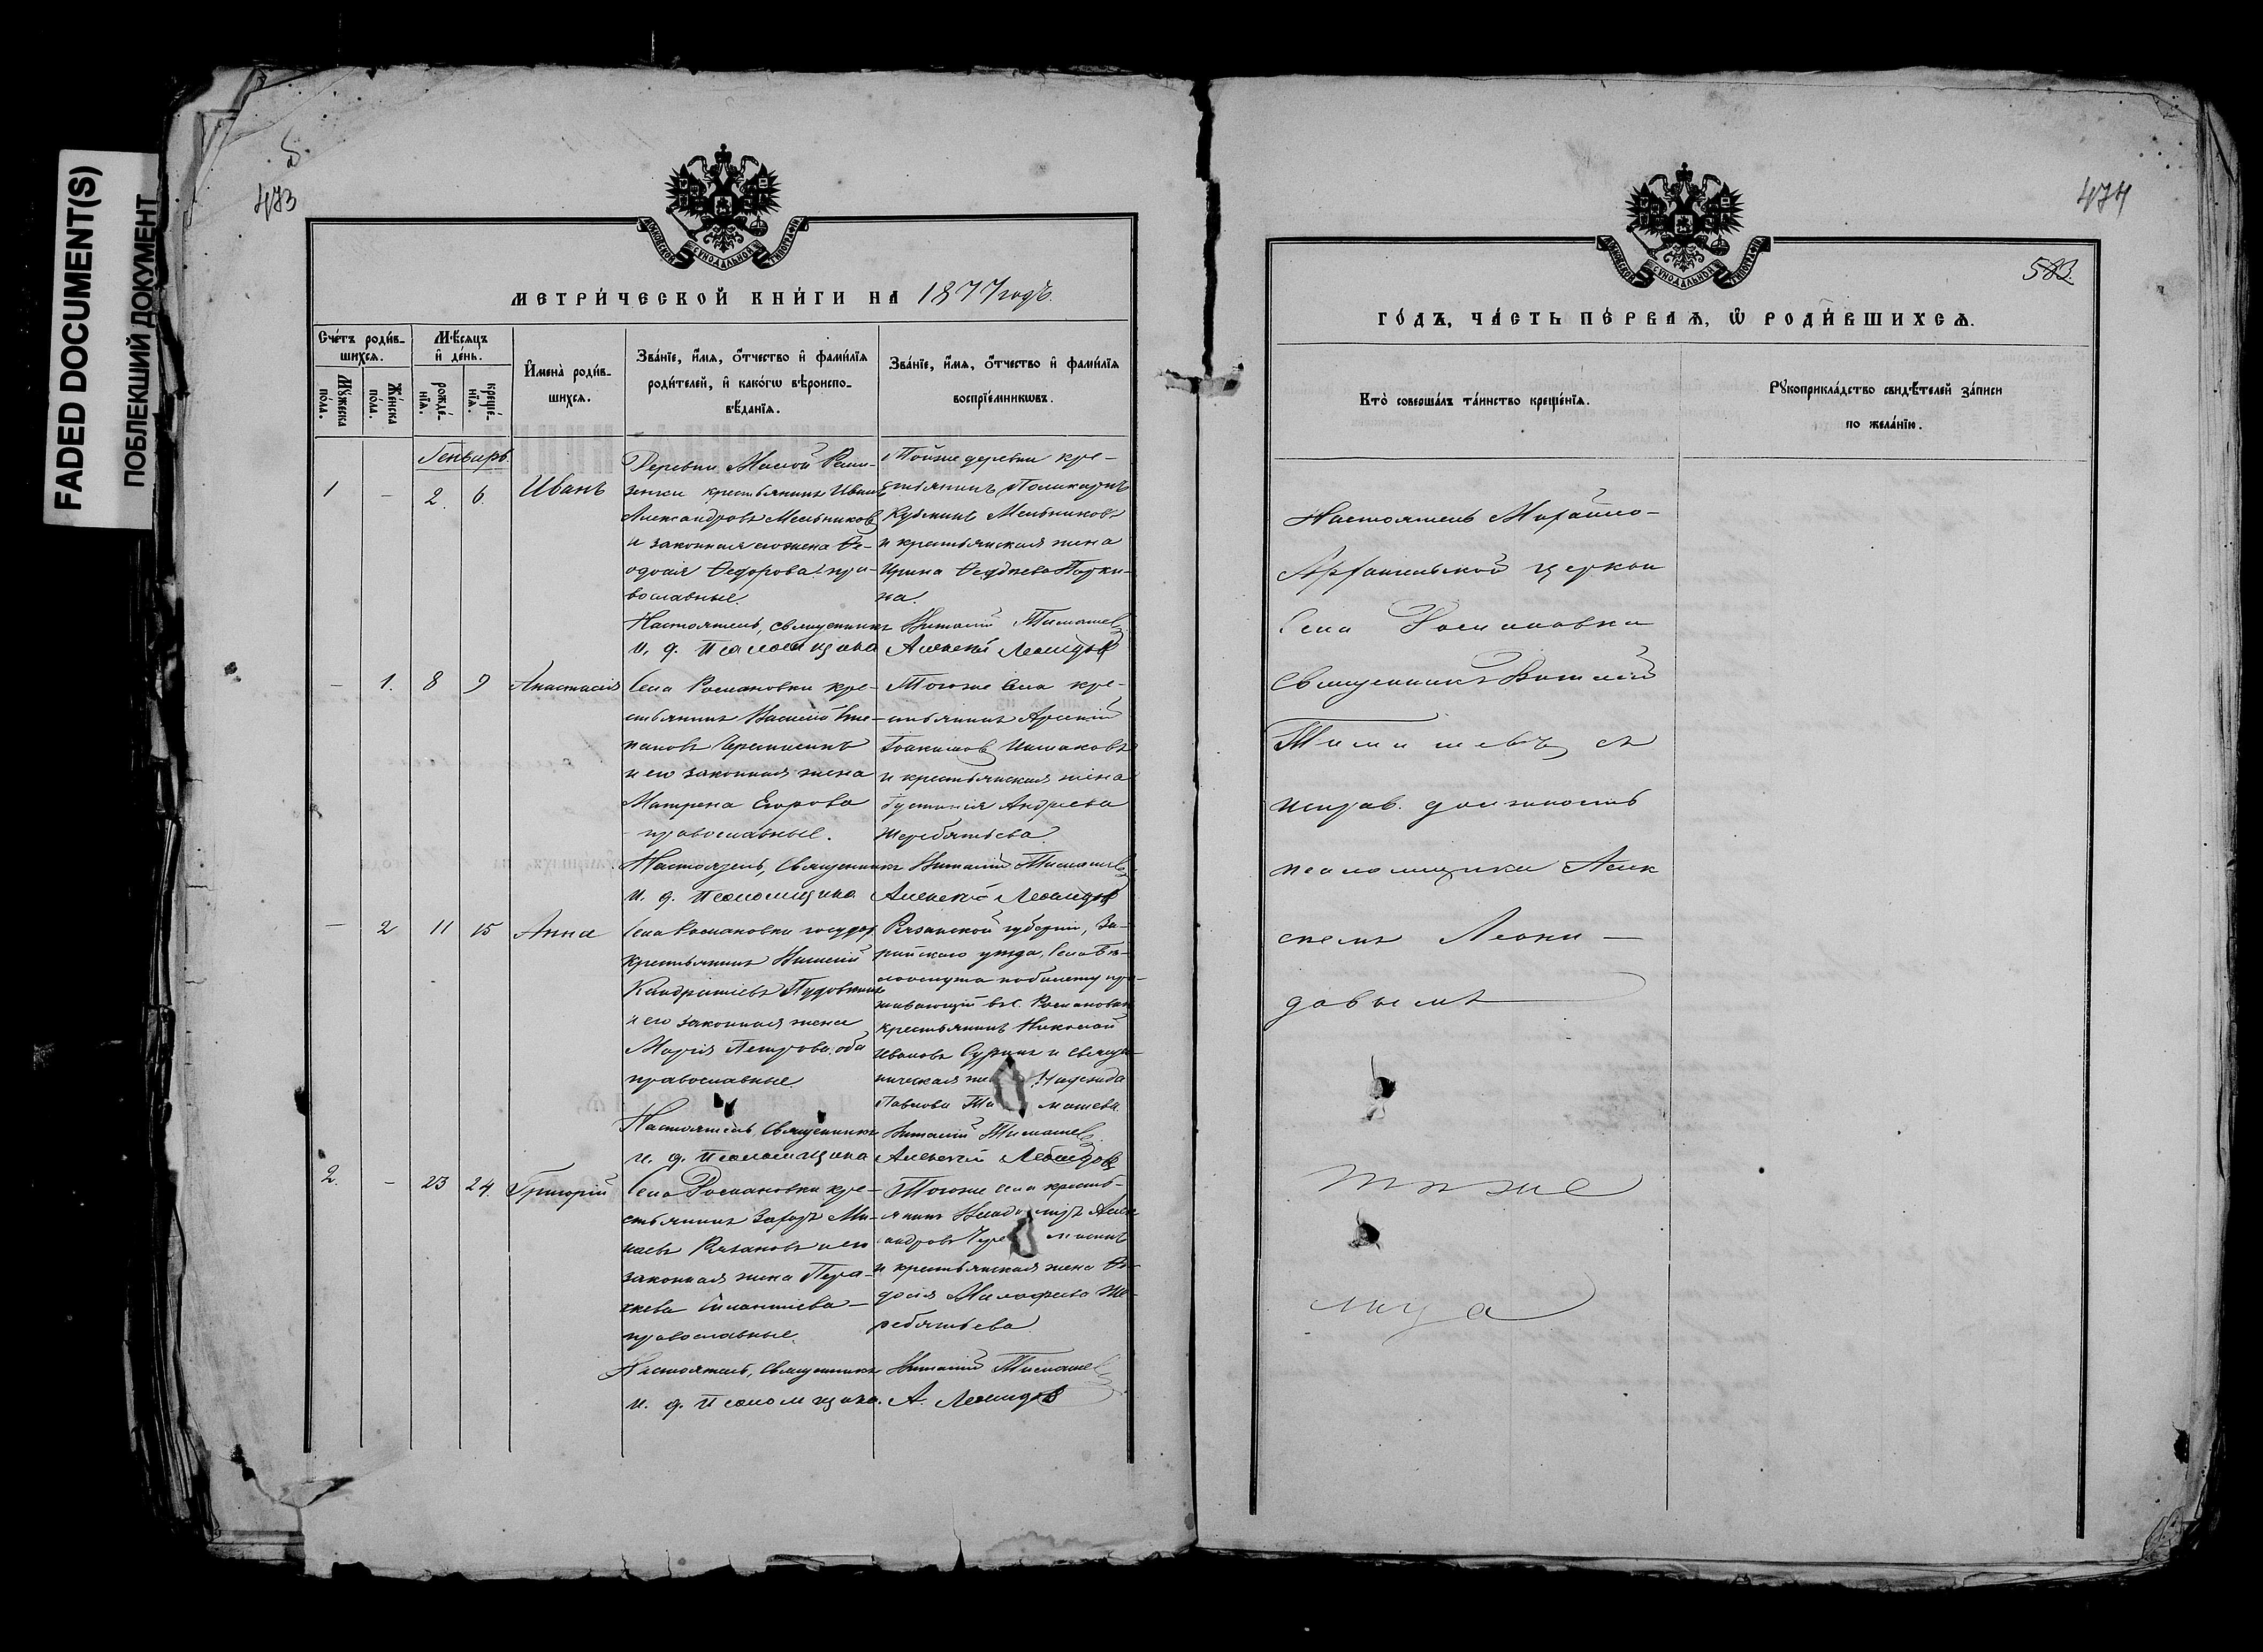 FADED DOCUMENT(S)
ПОБЛЕКШИЙ ДОКУМЕНТ
473
МОСКОВСКОЙ СѴНОДАЛЬНОЙ ТИПОГРАФІИ
МЕТРИ́ЧЕСКОЙ КНИ́ГИ НА 1877 годъ.
Сче́тъ роди́в-
шихсѧ.
Мꙋ́жеска по́ла.
Же́нска по́ла.
Мѣ́сѧцъ
и҆ де́нь.
рожде́-нїѧ.
креще́-нїѧ.
И҆мена̀ роди́в-
шихсѧ.
Зва́нїе, и҆́мѧ, ѻ҆́тчество и҆ фами́лїѧ
роди́телей, и҆ како́гѡ вѣроиспо-
вѣ́данїѧ.
Зва́нїе, и҆́мѧ, ѻ҆́тчество и҆ фами́лїѧ
воспрїе́мникѡвъ.
Генварь
1 - 2. 6. Иванъ
Деревни Малой
крестьянинъ Иванъ
Александровъ Мельниковъ
и законная его жена Ѳе-
одосія Ѳедорова пра-
вославные.
Тойже деревни кре-
стьянинъ Поликарпъ
Мельниковъ
и крестьянская жена
Ирина
на.
Настоятель, священникъ Виталій Тимашевъ
И. д. псаломщика Алексѣй Леонидовъ
- 1. 8 9 Анастасія
Села Романовки кре-
стьянинъ Василій Сте-
пановъ Черемисинъ
и его законная жена
Матрена Егорова
православные.
Тогоже села кре-
стьянинъ Арсеній
Іоакимовъ
и крестьянская жена
Іустинія Андреева
Жеребятьева
Настоятель, Священникъ Виталій Тимашевъ
И. д. псаломщика Алексѣй Леонидовъ
- 2 11 15 Анна
Села Романовки государ.
крестьянинъ
Кандратіевъ Пудовкинъ
и его законная жена
Марія Петрова, оба
православные.
Рязанской губерніи, За-
райскаго уѣзда, Села Бѣ-
лоомута по билету про-
живающій въ с. Романовки
крестьянинъ Николай
Ивановъ и священ-
ническая Надежда
Павлова Тимашева.
Настоятель, Священникъ Виталій Тимашевъ
и. д. псаломщика Алексѣй Леонидовъ
2. - 23 24. Григорій
Села Романовки кре-
стьянинъ Захаръ Ми-
наевъ Рязановъ и его
законная жена Пара-
скева
православные.
Тогоже села кресть-
янинъ Владимиръ Алек
сандровъ Черемисинъ
и крестьянская жена Ев-
докія Же-
ребятьева
Настоятель, Священникъ Виталій Тимашевъ
и. д. псаломщика. А. Леонидовъ
474
583.
МОСКОВСКОЙ СѴНОДАЛЬНОЙ ТИПОГРАФІИ
ГО́ДЪ, ЧА́СТЬ ПЕ́РВАѦ, Ѡ҆ РОДИ́ВШИХСѦ.
Кто̀ соверша́лъ та́инство креще́нїѧ.
Рꙋкоприкла́дство свидѣ́телей за́писи
по жела́нїю.
Настоятель Михайло-
Архангельской церкви
Села Романовки
Священникъ Виталій
Тимашевъ съ
исправ. должность
псаломщика Алек
сѣемъ Леони-
довымъ
тѣже
лица